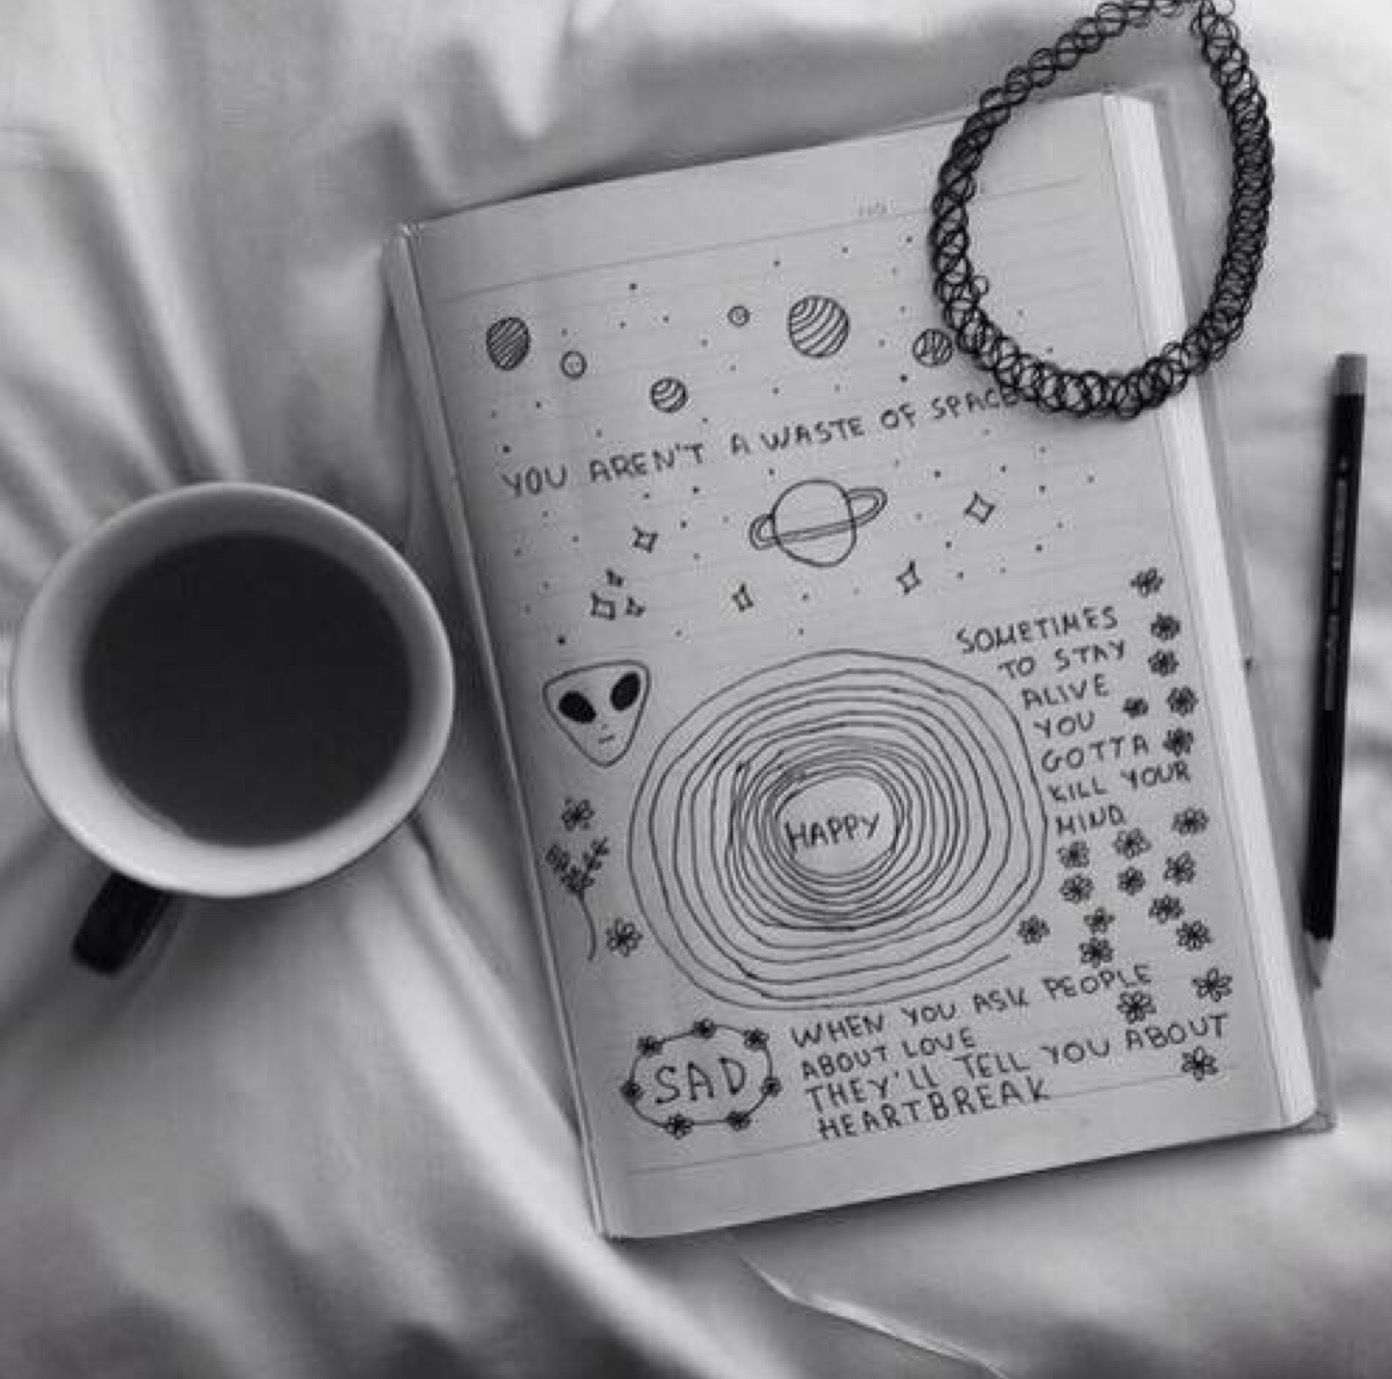 YOU AREN'T A WASTE OF SPACE
SOMETIMES
TO STAY
ALIVE
YOU
GOTTA
KILL YOUR
MIND
HAPPY
SAD
WHEN YOU ASK PEOPLE
ABOUT LOVE
THEY'LL TELL YOU ABOUT
HEARTBREAK